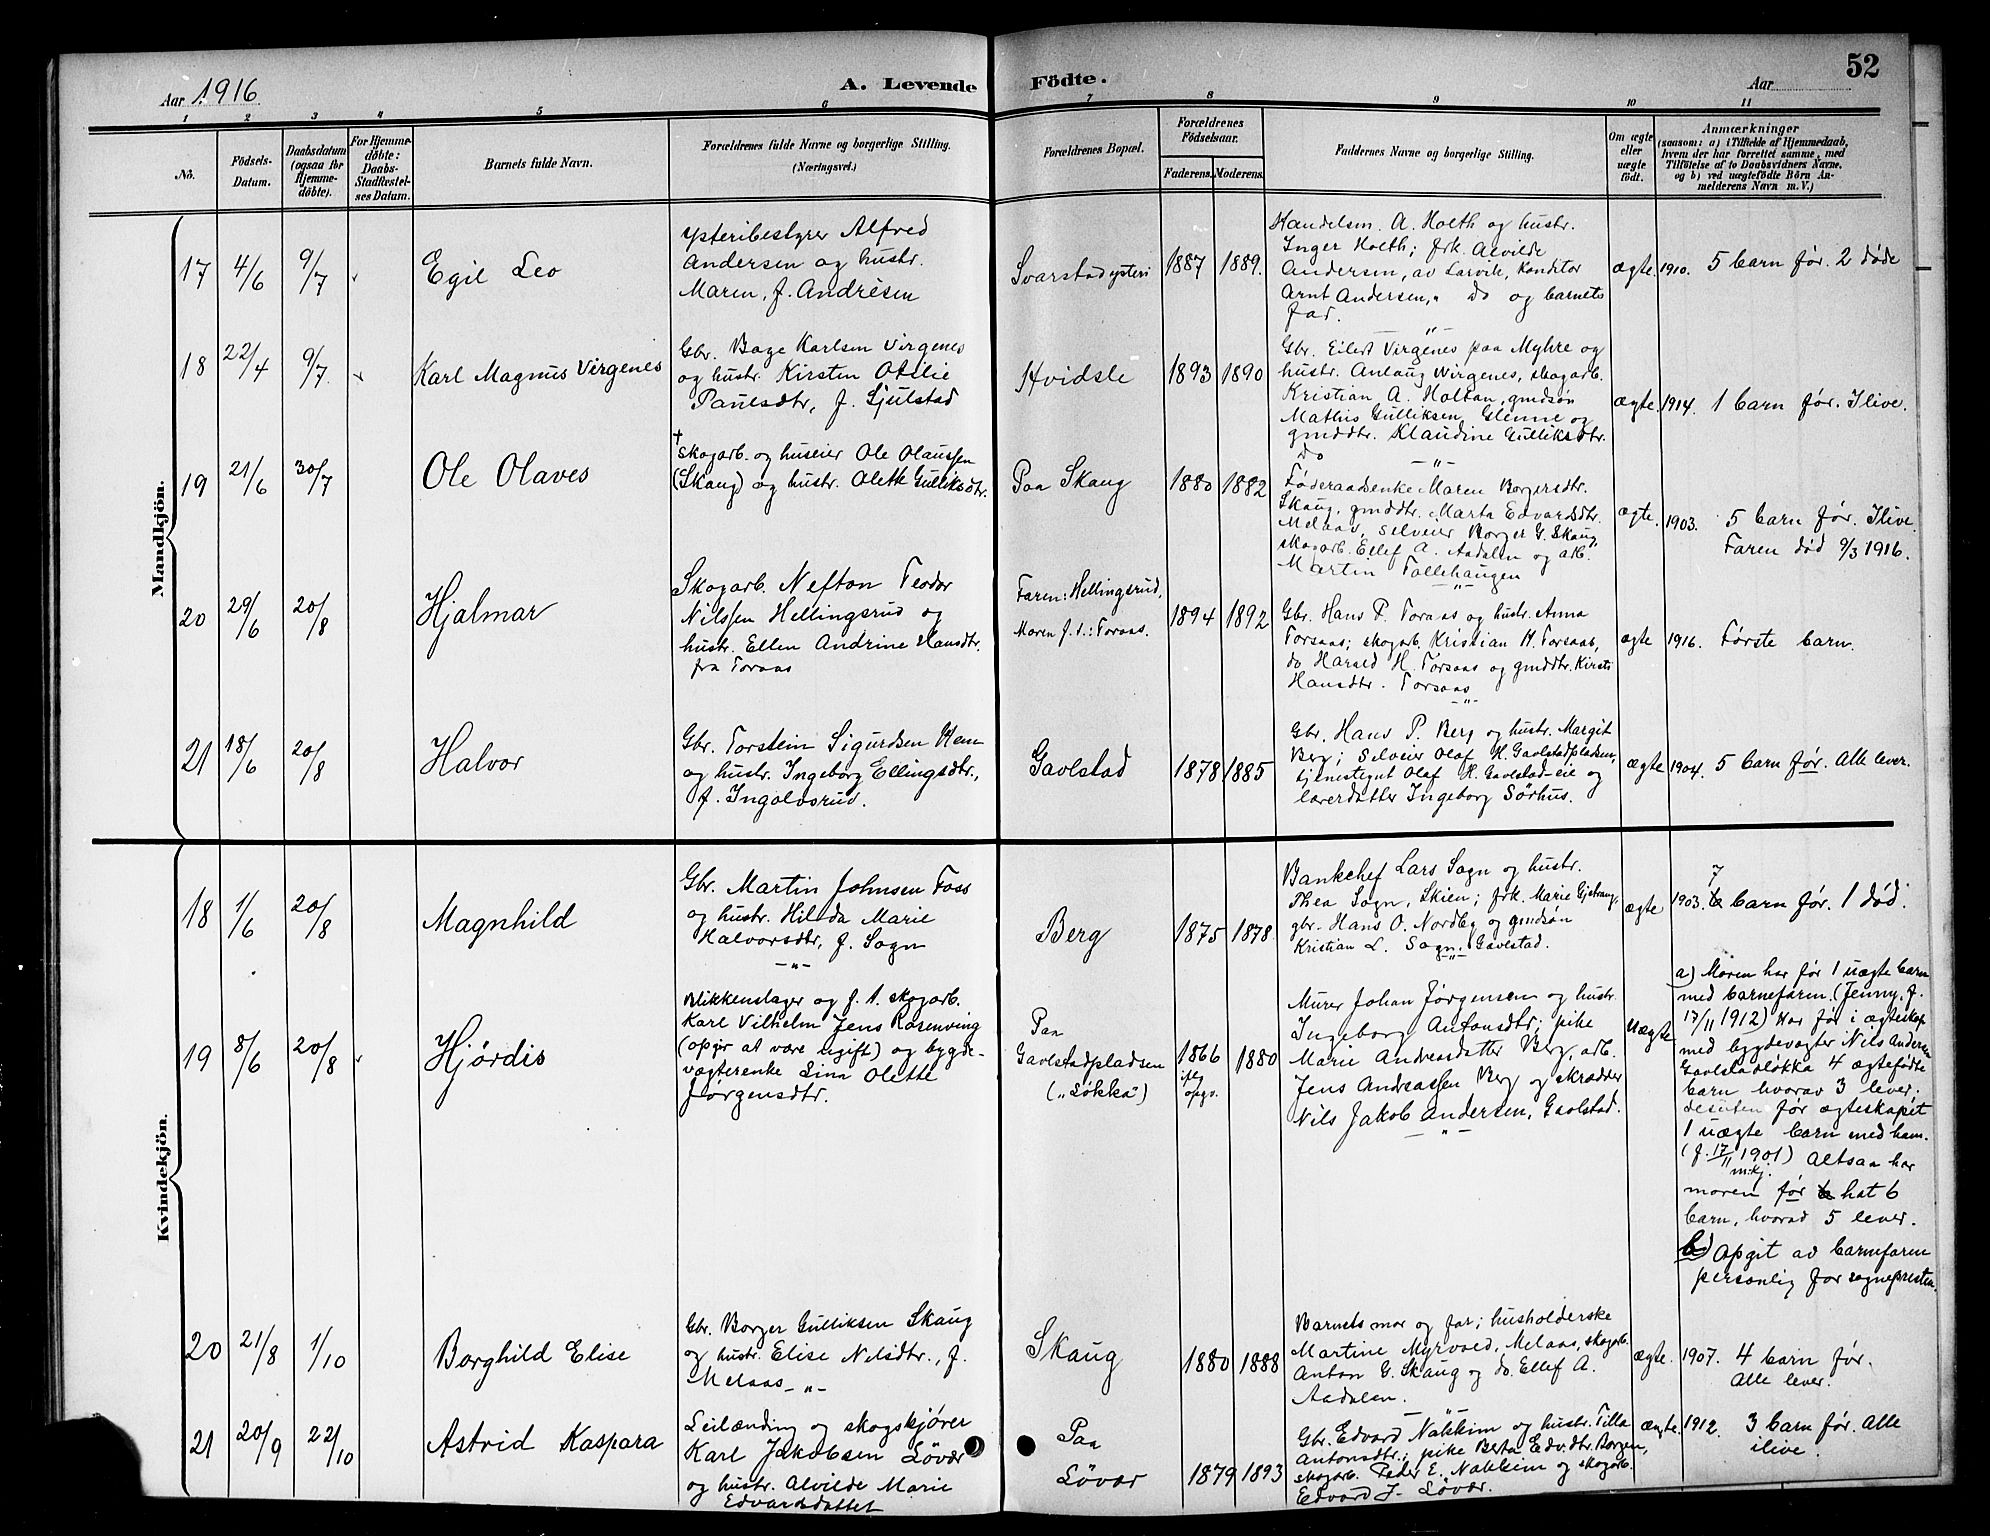 52
Aar 1916
A. Levende Födte.
Aar
1 2 3 4 5 6 7 8 9 10 11
No.
Födsels-
Datum.
Daabsdatum
(ogsaa for
Hjemme-
döbte).
For Hjemme-
döbte:
Daabs-
Stadfæstel-
ses Datum.
Barnets fulde Navn.
Forældrenes fulde Navne og borgerlige Stilling.
(Næringsvei.)
Forældrenes Bopæl.
Forældrenes
Födselsaar.
Faderens. Moderens.
Faddernes Navne og borgerlige Stilling.
Om ægte
eller
uægte
födt.
Anmærkninger
(saasom: a) i Tilfælde af Hjemmedaab,
hvem der har forrettet samme, med
Tilföielse af to Daabsvidners Navne,
og b) ved uægtefödte Börn An-
melderens Navn m. V.)
Mandkjön.
17
4/6
9/7
Egil Leo
Ysteribestyrer Alfred
Andersen og hustr.
Maren, f. Andrésen
Svarstadysteri
1887
1889.
Handelsm. A. Holth og hustr.
Inger Holth; frk. Alvilde
Andersen, av Larvik, konditor
Arnt Andersen, " do og barnets
far.
ægte.
1910. 5 barn før. 2 døde
18
22/4
9/7
Karl Magnus Virgenes
Gbr. Bage Karlsen Virgenes
og hustr. Kirsten Otilie
Paulsdtr, f. Sjulstad
Hvidsle
1893
1890
Gbr. Eilert Virgenes paa Myhre og
hustr. Anlaug Virgenes, skogarb.
Kristian A. Holtan, gmdsøn
Mathis Gulliksen Glenne og
gmddtr. Klaudine Gulliksdtr.
do
ægte.
1914. 1 barn før. Ilive.
19
21/6
30/7
Ole Olaves
† Skogarb. og huseier Ole Olaussen
(Skaug) og hustr. Olette Gulliksdtr.
Paa Skaug
1880
1882
Føderaadsenke Maren Borgersdtr.
Skaug, gmddtr. Marta Edvardsdtr.
Melaas, selveier Borger G. Skaug,
skogarb. Ellef A. Aadalen og arb.
Martin Tollehaugen
ægte.
1903. 5 barn før. Ilive.
Faren død 9/3 1916.
20
29/6
20/8
Hjalmar
Skogarb. Nefton Teodor
Nilssen Hellingsrud og
hustr. Ellen Andrine Hansdtr.
fra Toraas
Faren: Hellingsrud,
Moren f. t.: Toraas.
1894
1892
Gbr. Hans P. Toraas og hustr. Anna
Torsaas; skogarb. Kristian H. Torsaas,
do Harald H. Torsaas og gmddtr. Kirsti
Hansdtr. Torsaas
ægte
1916. Første barn.
21
18/6
20/8
Halvor
Gbr. Torstein Sigurdsen Hem
og hustr. Ingeborg Ellingsdtr.,
f. Ingolvsrud.
Gavlstad
1878
1885
Gbr. Hans P. Berg og hustr. Margit
Berg; Selveier Olaf H. Gavlstadpladsen,
tjenestegut Olaf K. Gavlstad-eie og
lærerdatter Ingeborg Sørhus.
ægte
1904. 5 barn før. Alle lever.
Kvindekjön.
18
1/6
20/8
Magnhild
Gbr. Martin Johnsen Foss
og hustr. Hilda Marie
Halvorsdtr, f. Sogn
Berg
1875
1878
Bankchef Lars Sogn og hustr.
Thea Sogn, Skien; frk. Marie Gjetrang,
gbr. Hans O. Nordby og gmdsøn
Kristian L. Sogn, Gavlstad.
ægte
1903. 7 barn før. 1 død.
19
8/6
20/8
Hjørdis
Blikkenslager og f. t. skogarb.
Karl Vilhelm Jens Rosenving
(opgir at være ugift) og bygde-
vægterenke Lina Olette
Jørgensdtr.
Paa
Gavlstadpladsen
("Løkka")
1866
iflg
opgv.
1880
Murer Johan Jørgensen og hustr
Ingeborg Antonsdtr; pike
Marie Andreasdatter Berg, arb.
Jens Andreassen Berg og skrædder
Nils Jakob Andersen, Gavlstad.
uægte
a) Moren har før 1 uægte barn
med barnefaren. (Jenny, f.
17/11 1912) Har før i ægteskap
med bygdevægter Nils Andersen
Gavlstadløkka 4 ægtefødte
barn hvorav 3 lever;
desuten før ægteskapet
1 uægte barn med ham.
(f. 17/11 1901) Altsaa har
m.kj.
moren før hat 6
barn, hvorav 5 lever.
b) Opgit av barnefaren
personlig for sognepresten.
20
21/8
1/10
Borghild Elise
Gbr. Borger Gulliksen Skaug
og hustr. Elise Nilsdtr., f.
Melaas
Skaug
1880
1888
Barnets mor og far; husholderske
Martine Myrvold, Melaas, skogarb.
Anton G. Skaug og do Ellef A.
Aadalen.
ægte.
1907. 4 barn før.
Alle lever.
21
20/9
22/10
Astrid Kaspara
Leilænding og skogskjører
Karl Jakobsen Løvær
og hustr. Alvilde Marie
Edvardsdatter
Paa
Løvær
1879
1893
Gbr. Edvard Nakkim og hustr. Tilla
Antonsdtr; pike Berta Edv.dtr. Borgen,
skogarb. Peder E. Nakkim og skogarb.
Edvard J. Løvær.
ægte.
1912. 3 barn før. Alle
ilive.